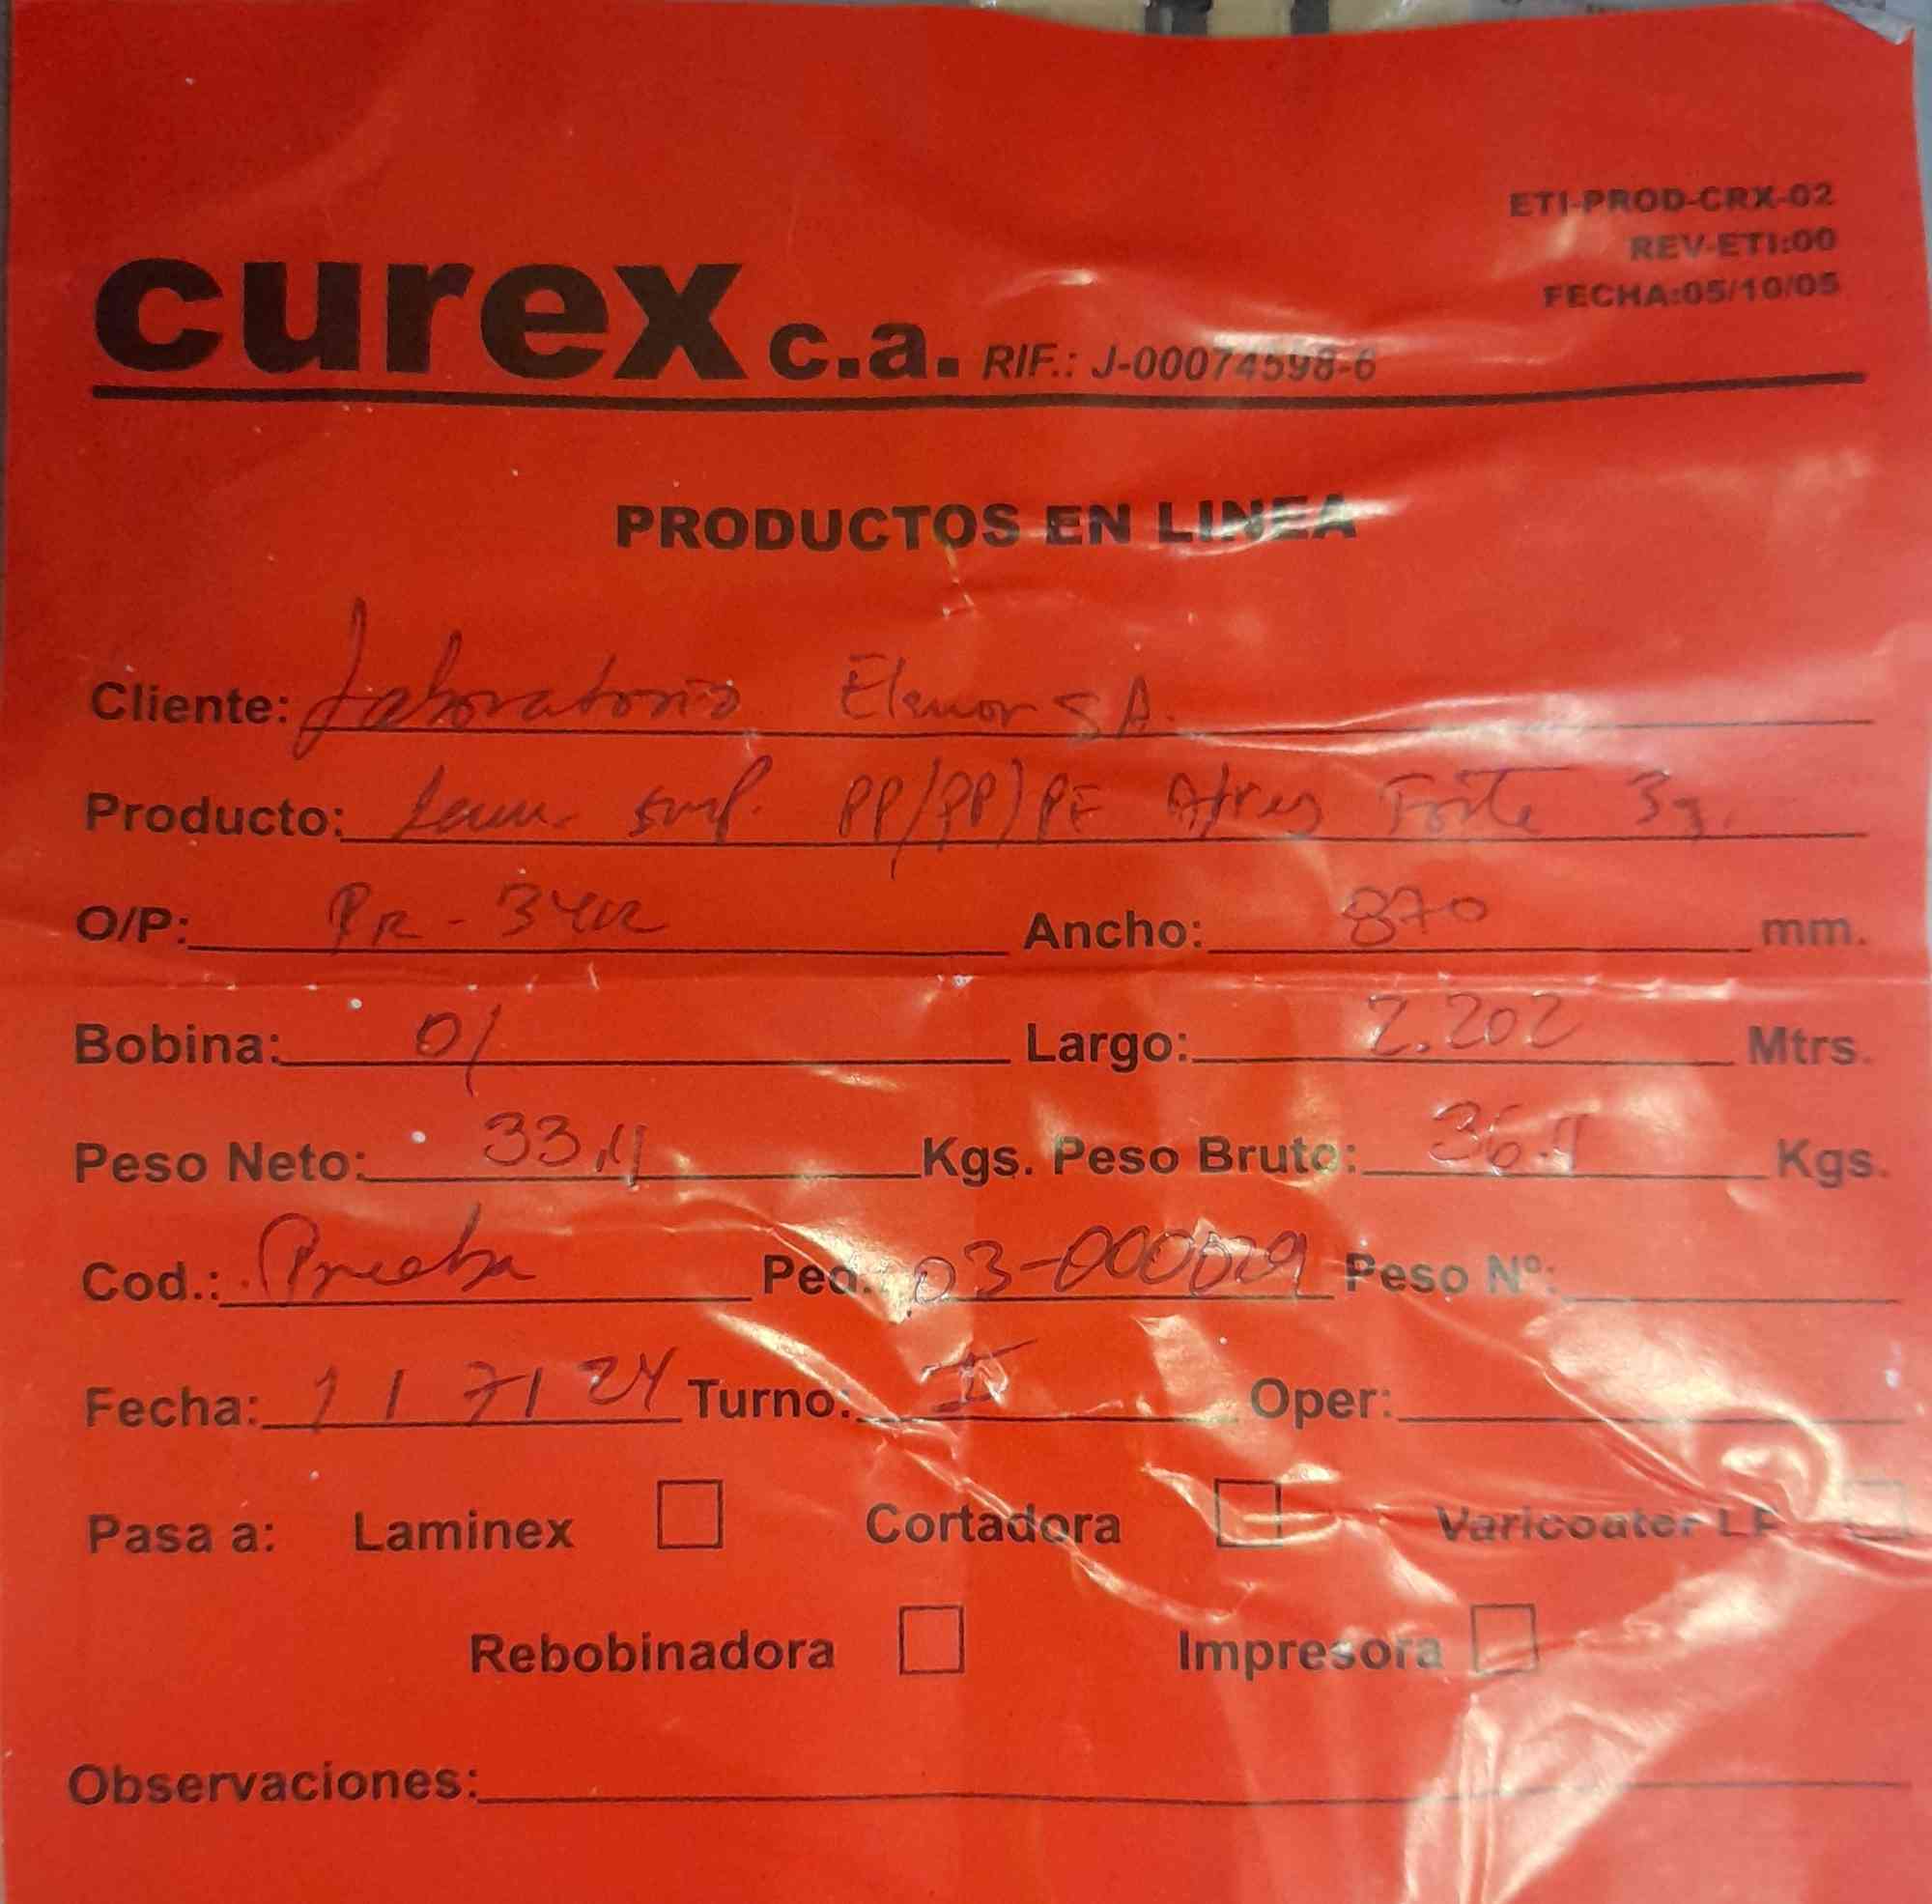 ETI-PROD-CRX-02
REV-ETI:00
FECHA:05/10/05
curex c.a. RIF.: J-00074598-6
PRODUCTOS EN LINEA
Cliente: Laboratorio Elmor S A.
Producto: Lam. Imp. PP/PP/PE Forte 3g.
O/P: PR- Ancho: 870 mm.
Bobina: 01 Largo: 2.202 Mtrs.
Peso Neto: 33,11 Kgs. Peso Bruto: 36.11 Kgs.
Cod.: Prueba Ped.: Peso Nº:
Fecha: 1 / 7 / 24 Turno: I Oper:
Pasa a: Laminex Cortadora Varicoater
Rebobinadora Impresora
Observaciones: